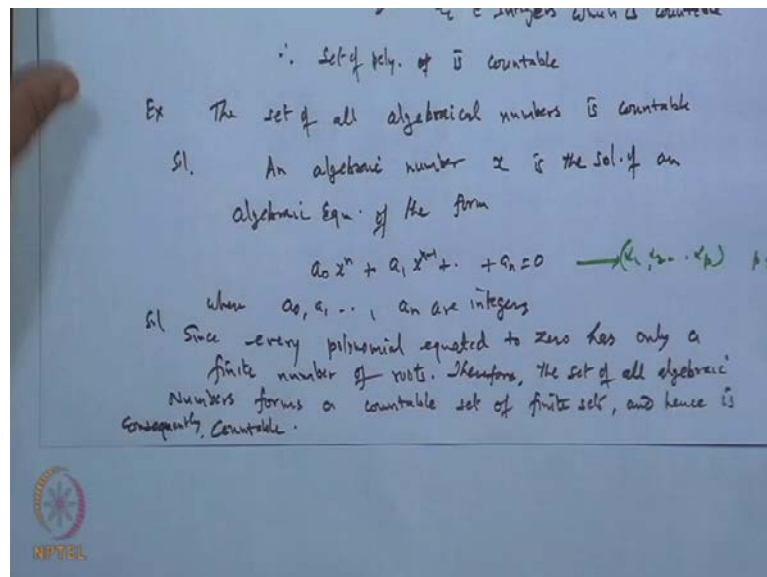 ∈ integers which is countable
∴ Set of poly. of is countable
Ex The set of all algebraical numbers is countable
Sl. An algebraic number x is the sol. of an
algebraic Equ. of the form
a₀ xⁿ + a₁ xⁿ⁻¹ + . + aₙ = 0 → (α₁, α₂ .. αₚ)
where a₀, a₁ .., aₙ are integers
Sl Since every polinomial equated to zero has only a
finite number of roots. Therefore, the set of all algebraic
Numbers forms a countable set of finite sets, and hence is
Consequently, Countable.
NPTEL